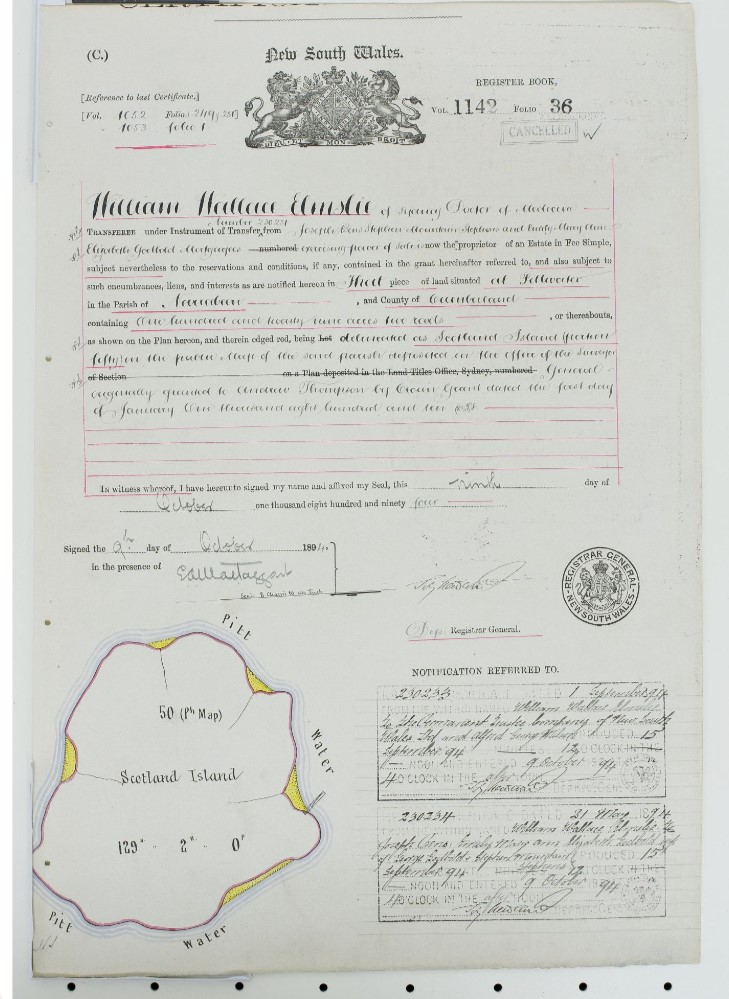 (C.)
New South Wales.
[Reference to last Certificate.]
[Vol. 1052 Folio
1053 folio 1
REGISTER BOOK,
VOL. 1142 FOLIO 36
CANCELLED
DIEU ET MON DROIT
William Wallace Elmslie of Sydney Doctor of Medicine
number 230231
TRANSFEREE under Instrument of Transfer from Joseph Stephen and Emily Mary Ann
Elizabeth Gottbold Mortgagees numbered exercising power of sale now the proprietor of an Estate in Fee Simple,
subject nevertheless to the reservations and conditions, if any, contained in the grant hereinafter referred to, and also subject to
such encumbrances, liens, and interests as are notified hereon in That piece of land situated at Pittwater
in the Parish of Narrabeen , and County of Cumberland
containing One hundred and twenty nine acres two roods , or thereabouts,
as shown on the Plan hereon, and therein edged red, being lot delineated as Scotland Island (portion
fifty) on the public Map of the said parish deposited in the office of the Surveyor
of Section on a Plan deposited in the Land Titles Office, Sydney, numbered General
originally granted to Andrew Thompson by Crown Grant dated the first day
of January One thousand eight hundred and ten
In witness whereof, I have hereunto signed my name and affixed my Seal, this ninth day of
October one thousand eight hundred and ninety four
Signed the 9th day of October 1894,
in the presence of
Dep. Registrar General.
REGISTRAR GENERAL
NEW SOUTH WALES
NOTIFICATION REFERRED TO.
230233 1 September 94
William Wallace Elmslie
to The Permanent Trustee Company of New South
Wales Ltd and Alfred George PRODUCED 15
September 94 12 O'CLOCK IN THE
NOON AND ENTERED 9 October 94
4 O'CLOCK IN THE
230234 31 May 94
William Wallace Elmslie to
Joseph Emily Mary Ann Elizabeth
of George PRODUCED 15
September 94 12
NOON AND ENTERED 9 October 94
4 O'CLOCK IN THE
Pitt
50 (Ph Map)
Water
Scotland Island
129a .. 2r .. 0p
Pitt
Water